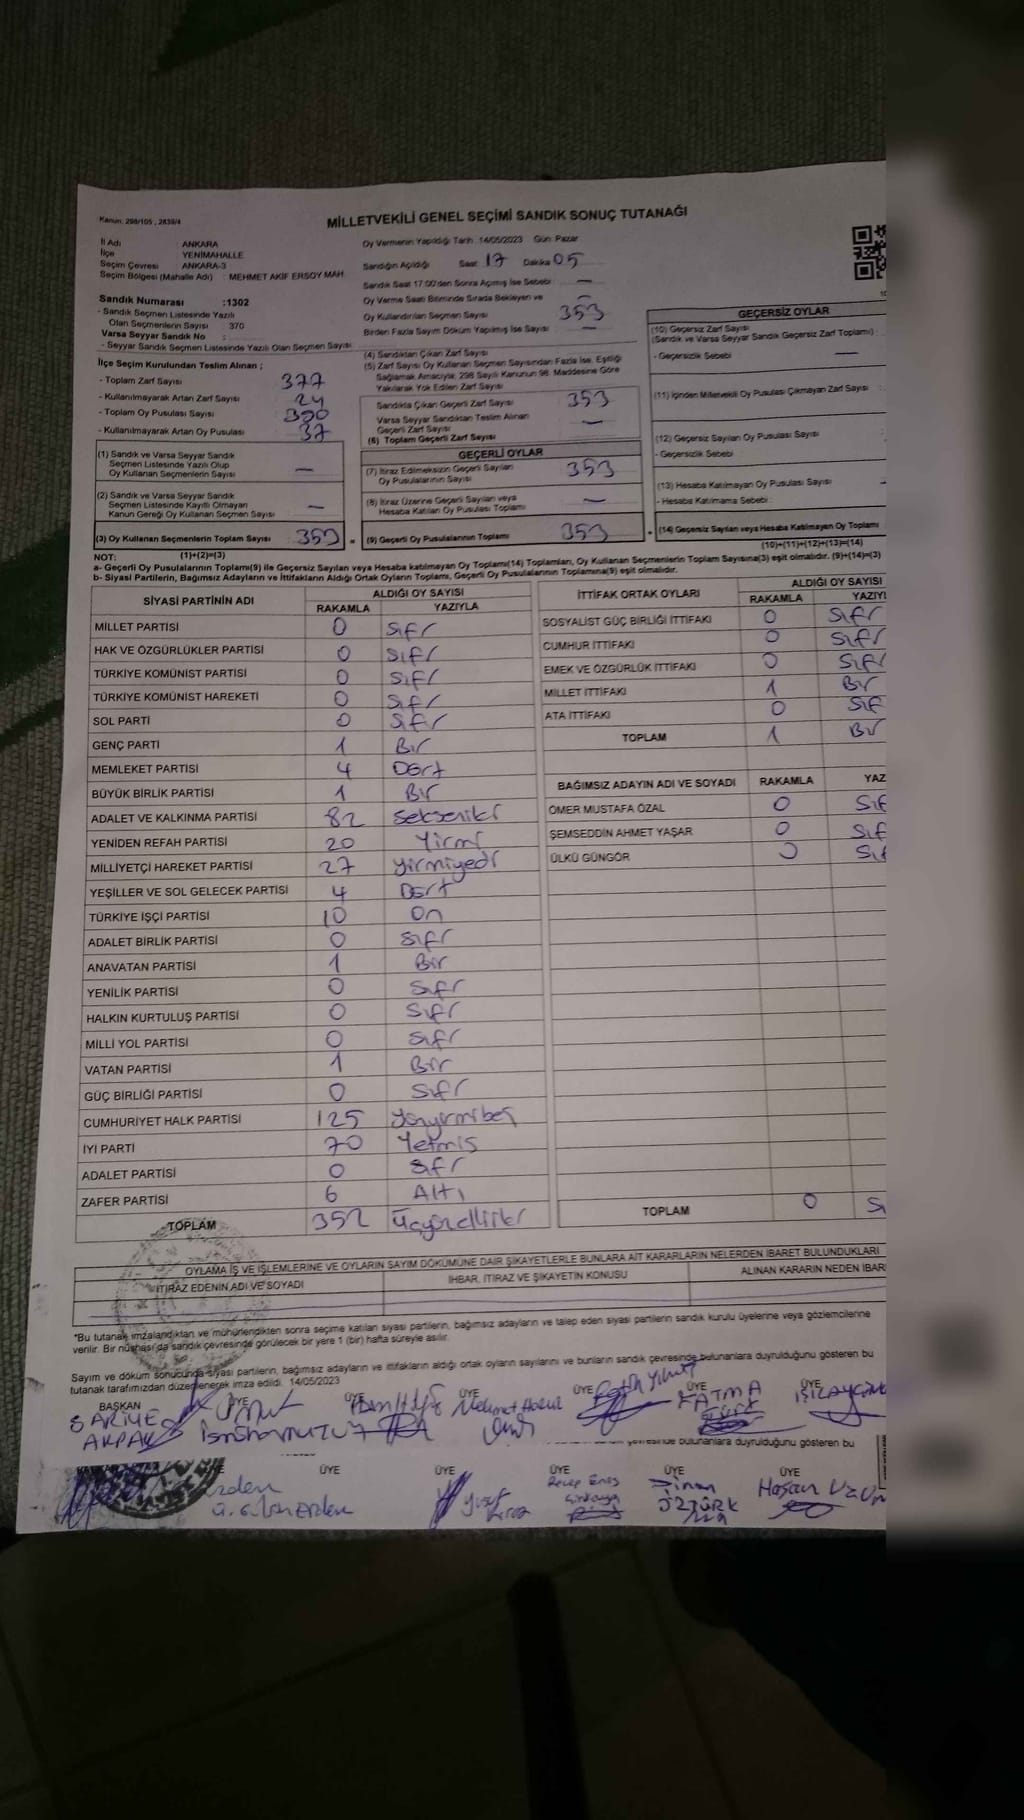 Kanun: 298/105 , 2839/4
MİLLETVEKİLİ GENEL SEÇİMİ SANDIK SONUÇ TUTANAĞI
İl Adı ANKARA
İlçe YENİMAHALLE
Seçim Çevresi ANKARA-3
Seçim Bölgesi (Mahalle Adı) : MEHMET AKİF ERSOY MAH.
Oy Vermenin Yapıldığı Tarih : 14/05/2023 Gün: Pazar
Sandığın Açıldığı Saat: 17 Dakika: 05
Sandık Saat 17:00'den Sonra Açılmış İse Sebebi : —
Oy Verme Saati Bitiminde Sırada Bekleyen ve
Oy Kullandırılan Seçmen Sayısı 353
Birden Fazla Sayım Döküm Yapılmış İse Sayısı : —
Sandık Numarası :1302
- Sandık Seçmen Listesinde Yazılı
Olan Seçmenlerin Sayısı 370
Varsa Seyyar Sandık No :
- Seyyar Sandık Seçmen Listesinde Yazılı Olan Seçmen Sayısı:
İlçe Seçim Kurulundan Teslim Alınan ;
- Toplam Zarf Sayısı : 377
- Kullanılmayarak Artan Zarf Sayısı : 24
- Toplam Oy Pusulası Sayısı : 390
- Kullanılmayarak Artan Oy Pusulası : 37
(1) Sandık ve Varsa Seyyar Sandık
Seçmen Listesinde Yazılı Olup
Oy Kullanan Seçmenlerin Sayısı : —
(2) Sandık ve Varsa Seyyar Sandık
Seçmen Listesinde Kayıtlı Olmayan
Kanun Gereği Oy Kullanan Seçmen Sayısı : —
(3) Oy Kullanan Seçmenlerin Toplam Sayısı : 353
(1)+(2)=(3)
(4) Sandıktan Çıkan Zarf Sayısı
(5) Zarf Sayısı Oy Kullanan Seçmen Sayısından Fazla İse, Eşitliği
Sağlamak Amacıyla, 298 Sayılı Kanunun 98. Maddesine Göre
Yakılarak Yok Edilen Zarf Sayısı
Sandıkta Çıkan Geçerli Zarf Sayısı : 353
Varsa Seyyar Sandıktan Teslim Alınan
Geçerli Zarf Sayısı : —
(6) Toplam Geçerli Zarf Sayısı
GEÇERLİ OYLAR
(7) İtiraz Edilmeksizin Geçerli Sayılan
Oy Pusulalarının Sayısı : 353
(8) İtiraz Üzerine Geçerli Sayılan veya
Hesaba Katılan Oy Pusulası Toplamı : —
= (9) Geçerli Oy Pusulalarının Toplamı : 353
GEÇERSİZ OYLAR
(10) Geçersiz Zarf Sayısı
(Sandık ve Varsa Seyyar Sandık Geçersiz Zarf Toplamı) :
- Geçersizlik Sebebi : —
(11) İçinden Milletvekili Oy Pusulası Çıkmayan Zarf Sayısı :
(12) Geçersiz Sayılan Oy Pusulası Sayısı :
- Geçersizlik Sebebi :
(13) Hesaba Katılmayan Oy Pusulası Sayısı :
- Hesaba Katılmama Sebebi :
+ (14) Geçersiz Sayılan veya Hesaba Katılmayan Oy Toplamı
(10)+(11)+(12)+(13)=(14)
NOT:
a- Geçerli Oy Pusulalarının Toplamı(9) ile Geçersiz Sayılan veya Hesaba Katılmayan Oy Toplamı(14) Toplamları, Oy Kullanan Seçmenlerin Toplam Sayısına(3) eşit olmalıdır. (9)+(14)=(3)
b- Siyasi Partilerin, Bağımsız Adayların ve İttifakların Aldığı Ortak Oyların Toplamı, Geçerli Oy Pusulalarının Toplamına(9) eşit olmalıdır.
SİYASİ PARTİNİN ADI ALDIĞI OY SAYISI
RAKAMLA YAZIYLA
MİLLET PARTİSİ 0 Sıfır
HAK VE ÖZGÜRLÜKLER PARTİSİ 0 Sıfır
TÜRKİYE KOMÜNİST PARTİSİ 0 Sıfır
TÜRKİYE KOMÜNİST HAREKETİ 0 Sıfır
SOL PARTİ 0 Sıfır
GENÇ PARTİ 1 Bir
MEMLEKET PARTİSİ 4 Dört
BÜYÜK BİRLİK PARTİSİ 1 Bir
ADALET VE KALKINMA PARTİSİ 82 Sekseniki
YENİDEN REFAH PARTİSİ 20 Yirmi
MİLLİYETÇİ HAREKET PARTİSİ 27 Yirmiyedi
YEŞİLLER VE SOL GELECEK PARTİSİ 4 Dört
TÜRKİYE İŞÇİ PARTİSİ 10 On
ADALET BİRLİK PARTİSİ 0 Sıfır
ANAVATAN PARTİSİ 1 Bir
YENİLİK PARTİSİ 0 Sıfır
HALKIN KURTULUŞ PARTİSİ 0 Sıfır
MİLLİ YOL PARTİSİ 0 Sıfır
VATAN PARTİSİ 1 Bir
GÜÇ BİRLİĞİ PARTİSİ 0 Sıfır
CUMHURİYET HALK PARTİSİ 125 Yüzyirmibeş
İYİ PARTİ 70 Yetmiş
ADALET PARTİSİ 0 Sıfır
ZAFER PARTİSİ 6 Altı
TOPLAM 352 Üçyüzelliiki
İTTİFAK ORTAK OYLARI ALDIĞI OY SAYISI
RAKAMLA YAZIYL
SOSYALİST GÜÇ BİRLİĞİ İTTİFAKI 0 Sıfır
CUMHUR İTTİFAKI 0 Sıfır
EMEK VE ÖZGÜRLÜK İTTİFAKI 0 Sıfır
MİLLET İTTİFAKI 1 Bir
ATA İTTİFAKI 0 Sıf
TOPLAM 1 Bir
BAĞIMSIZ ADAYIN ADI VE SOYADI RAKAMLA YAZ
ÖMER MUSTAFA ÖZAL 0 Sıf
ŞEMSEDDİN AHMET YAŞAR 0 Sıf
ÜLKÜ GÜNGÖR 0 Sıf
TOPLAM 0 S
OYLAMA İŞ VE İŞLEMLERİNE VE OYLARIN SAYIM DÖKÜMÜNE DAİR ŞİKAYETLERLE BUNLARA AİT KARARLARIN NELERDEN İBARET BULUNDUKLARI
İTİRAZ EDENİN ADI VE SOYADI İHBAR, İTİRAZ VE ŞİKAYETİN KONUSU ALINAN KARARIN NEDEN İBAR
*Bu tutanak imzalandıktan ve mühürlendikten sonra seçime katılan siyasi partilerin, bağımsız adayların ve talep eden siyasi partilerin sandık kurulu üyelerine veya gözlemcilerine
verilir. Bir nüshası da sandık çevresinde görülecek bir yere 1 (bir) hafta süreyle asılır.
Sayım ve döküm sonucunda siyasi partilerin, bağımsız adayların ve ittifakların aldığı ortak oyların sayılarını ve bunların sandık çevresinde bulunanlara duyurulduğunu gösteren bu
tutanak tarafımızdan düzenlenerek imza edildi. 14/05/2023
BAŞKAN ÜYE ÜYE ÜYE ÜYE ÜYE ÜYE
Mehmet Fatih Yılmaz FATMA
bulunanlara duyurulduğunu gösteren bu
ÜYE ÜYE ÜYE ÜYE ÜYE ÜYE
Erden Yusuf Recep Enes Sinan ÖZTÜRK Hasan Uzun